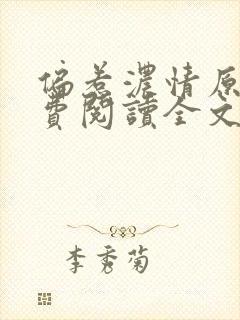 偏惹濃情原
費閱讀全文
李秀菊